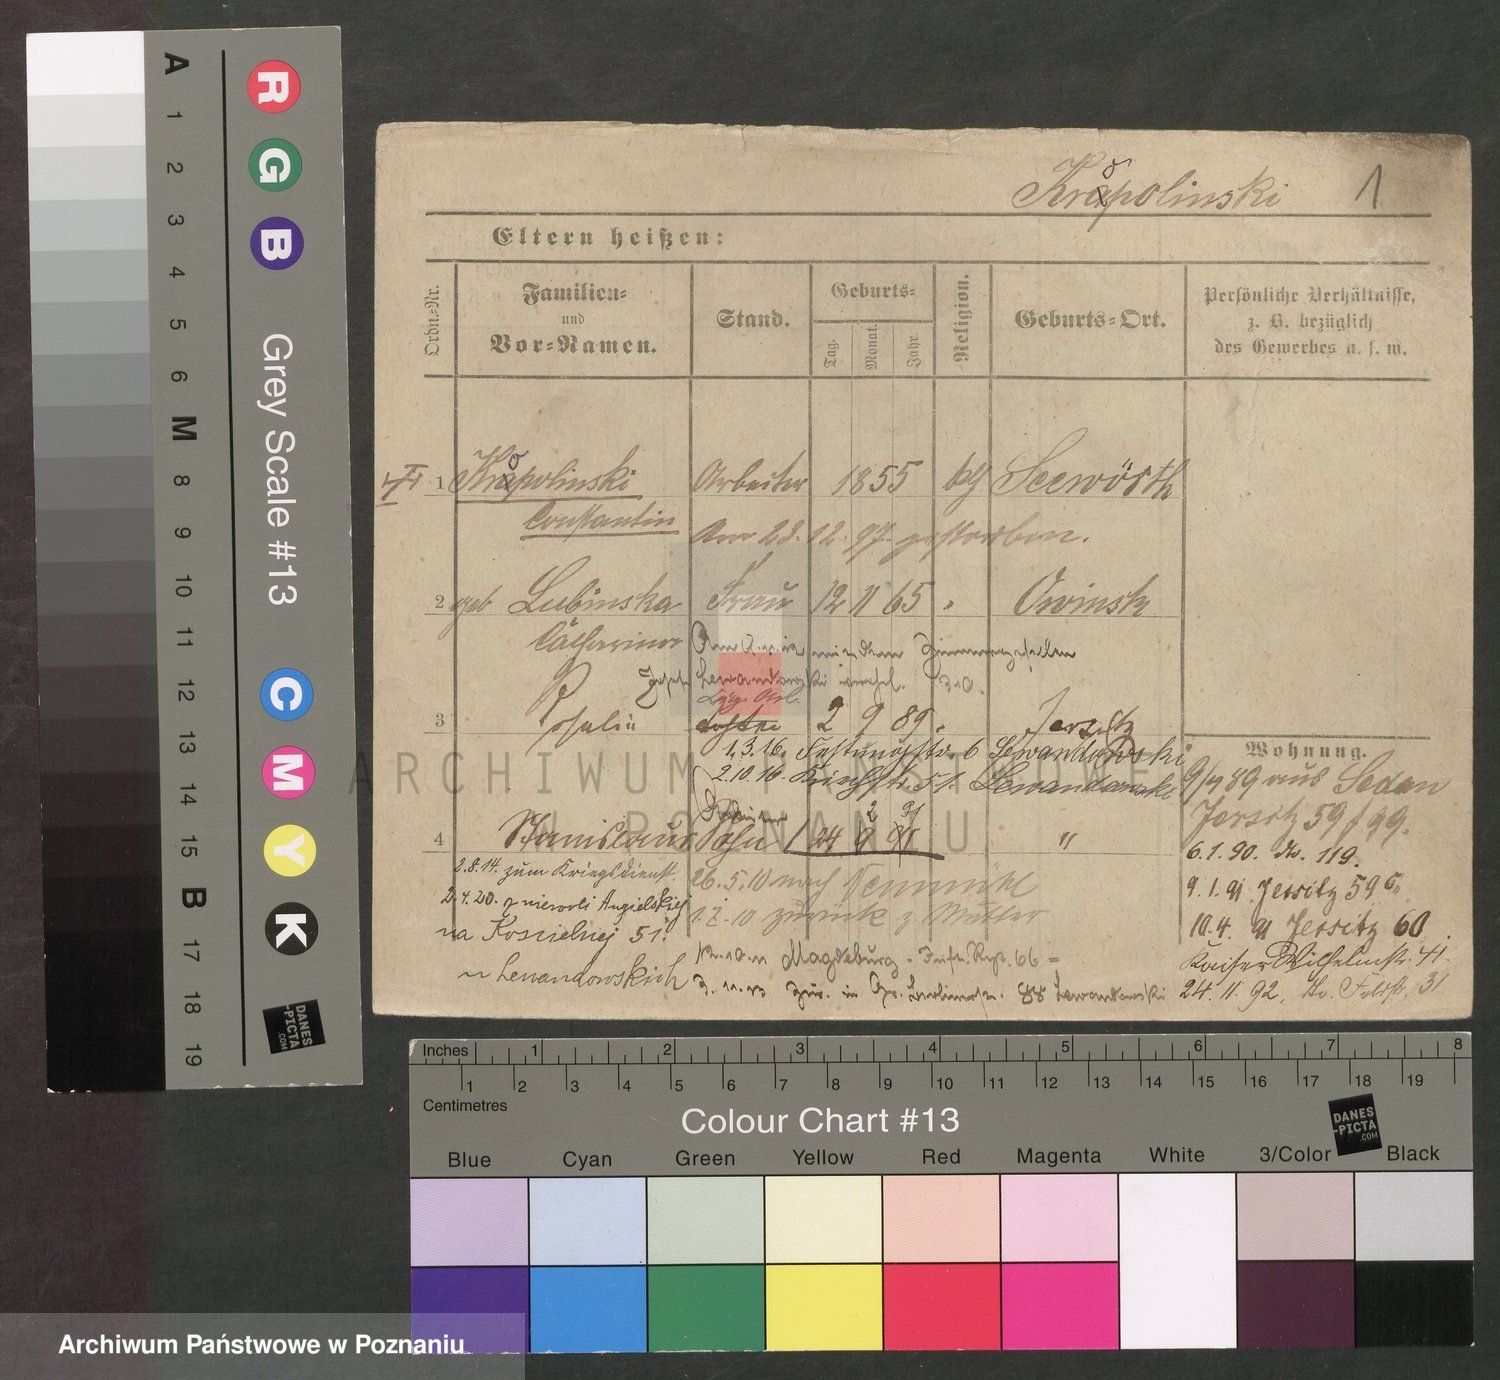 A 1 2 3 4 5 6 M 8 9 10 11 12 13 14 15 B 17 18 19
R G B
Grey Scale #13
C M Y K
DANES
-PICTA
.COM
Krapolinski 1
o
Eltern heißen:
Ordn.-Nr.
Familien-
und
Vor-Namen.
Stand.
Geburts-
Tag. Monat. Jahr.
Religion.
Geburts-Ort.
Persönliche Verhältnisse,
z. B. bezüglich
des Gewerbes u. s. w.
o
1 Krapolinski Arbeiter 1855 kth Seewörth
Constantin
Am 28.12.97 gestorben.
2 geb Lubinska Frau 12 11 65 Owinsk
Catharina mit dem Zimmergesellen
Joseph Lewandowski
3 Rosalie tochter 2 9 89 Jersitz
1.3.16. Festungsstr. 6 Lewandowski
2.10.16. 51. Lewandowski
ARCHIWUM PAŃSTWOWE
W POZNANIU
2 91
4 Stanislaus Sohn 24 9 91 "
2.8.14. zum Kriegsdienst.
2.4.20. z niewoli Angielskiej
na Kościelnej 51.
u Lewandowskich
26.5.10 nach Neumühl
10 zurück z. Mutter
Magdeburg Inft. Rgt. 66
in Gr. Berlinerstr. 88 Lewandowski
Wohnung.
89 aus Sedan
Jersitz 59/99.
6.1.90. No. 119.
9.1.91. Jersitz 59
10.4. 91 Jersitz 60
Kaiser Wilhelmstr. 41.
24.11.92. 31
Inches 1 2 3 4 5 6 7 8
1 2 3 4 5 6 7 8 9 10 11 12 13 14 15 16 17 18 19
Centimetres
Colour Chart #13
DANES
-PICTA
.COM
Blue Cyan Green Yellow Red Magenta White 3/Color Black
Archiwum Państwowe w Poznaniu